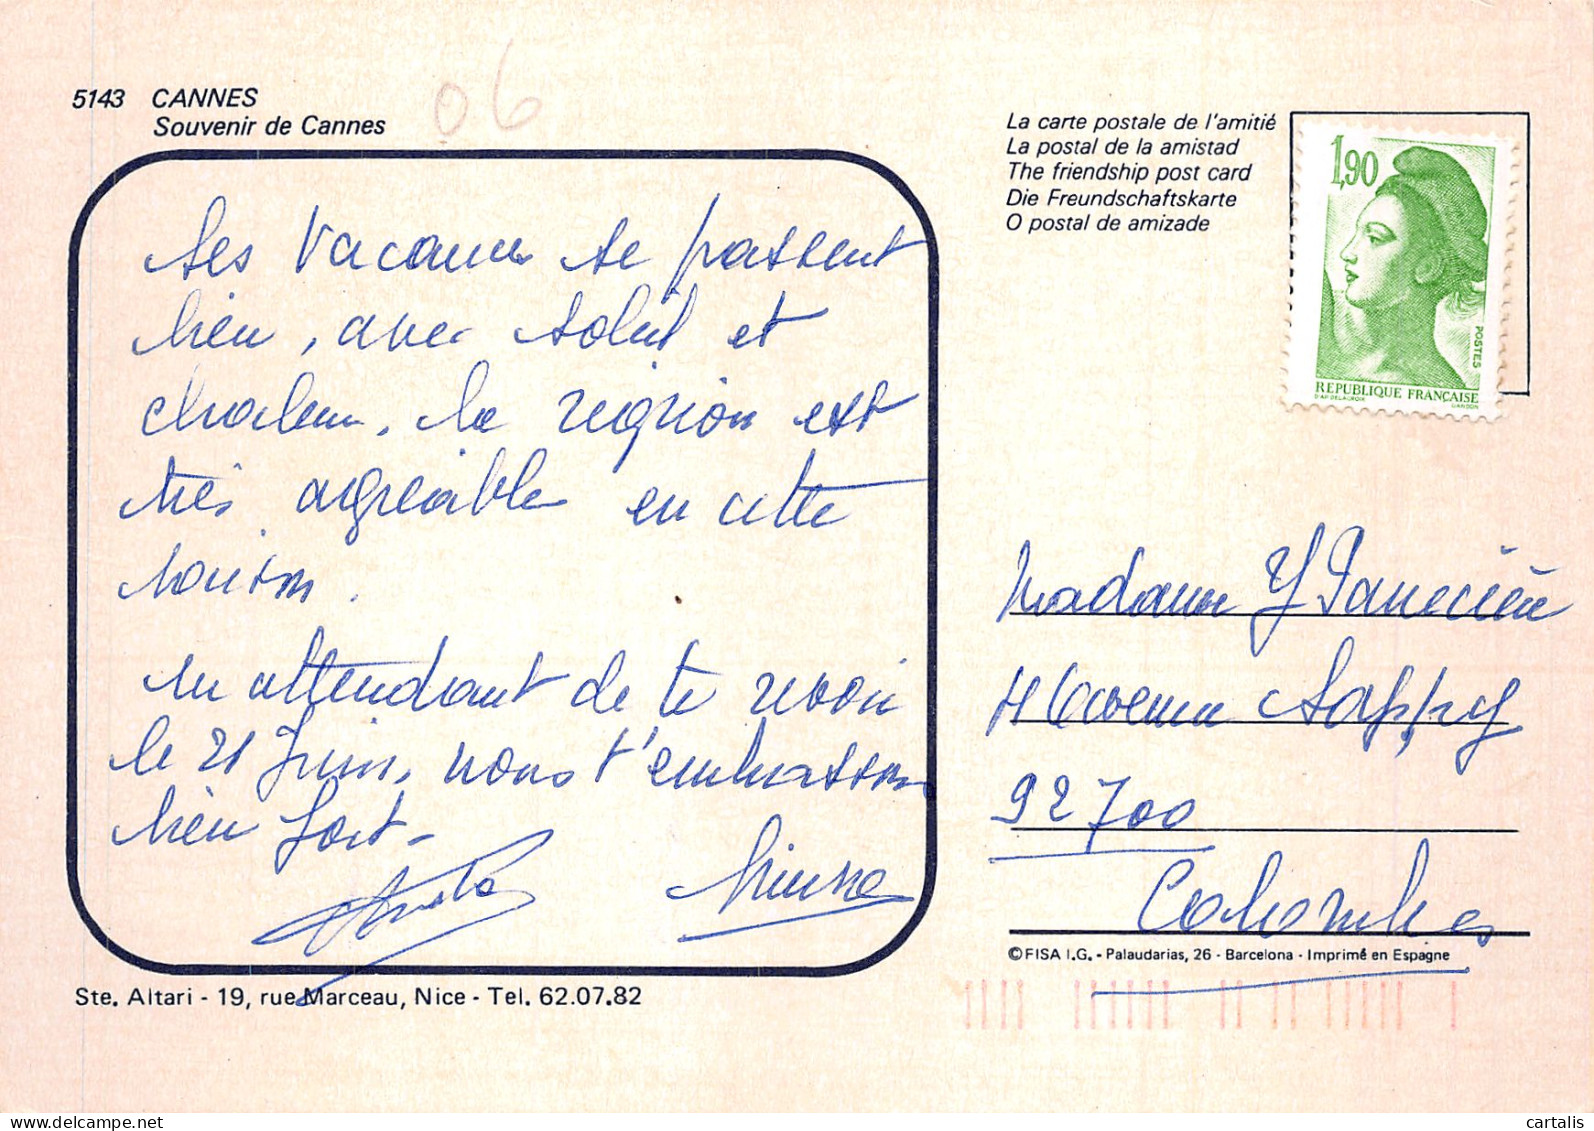 5143 CANNES
Souvenir de Cannes
06
La carte postale de l'amitié
La postal de la amistad
The friendship post card
Die Freundschaftskarte
O postal de amizade
1,90
POSTES
REPUBLIQUE FRANÇAISE
D'AP. DELACROIX GANDON
Les Vacances se passent
bien, avec soleil et
chaleur, la région est
très agréable en cette
saison.
En attendant de te revoir
le 21 Juin, nous t'embrassons
bien fort -
Madame Y
Avenue
92700
Colombes
©FISA I.G. - Palaudarias, 26 - Barcelona - Imprimé en Espagne
Ste. Altari - 19, rue Marceau, Nice - Tel. 62.07.82
delcampe.net
cartalis